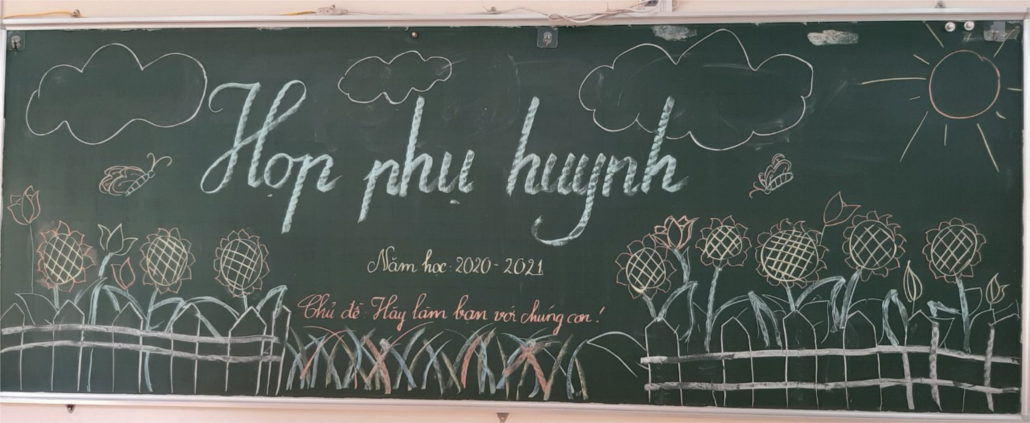 Họp phụ huynh
Năm học 2020-2021
Chủ đề Hãy làm bạn với chúng con!